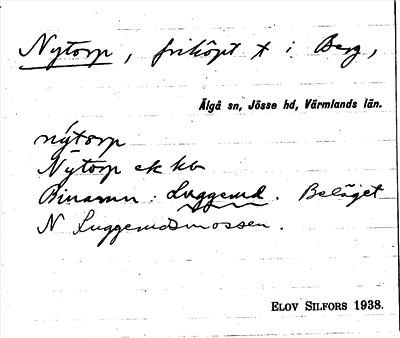 Nytorp, friköpt t i Berg,
Älgå sn, Jösse hd, Värmlands län.
nýtorp
Nytorp ek kb
Binamn: Luggemd. Beläget
N Luggemdsmossen.
ELOV SILFORS 1938.